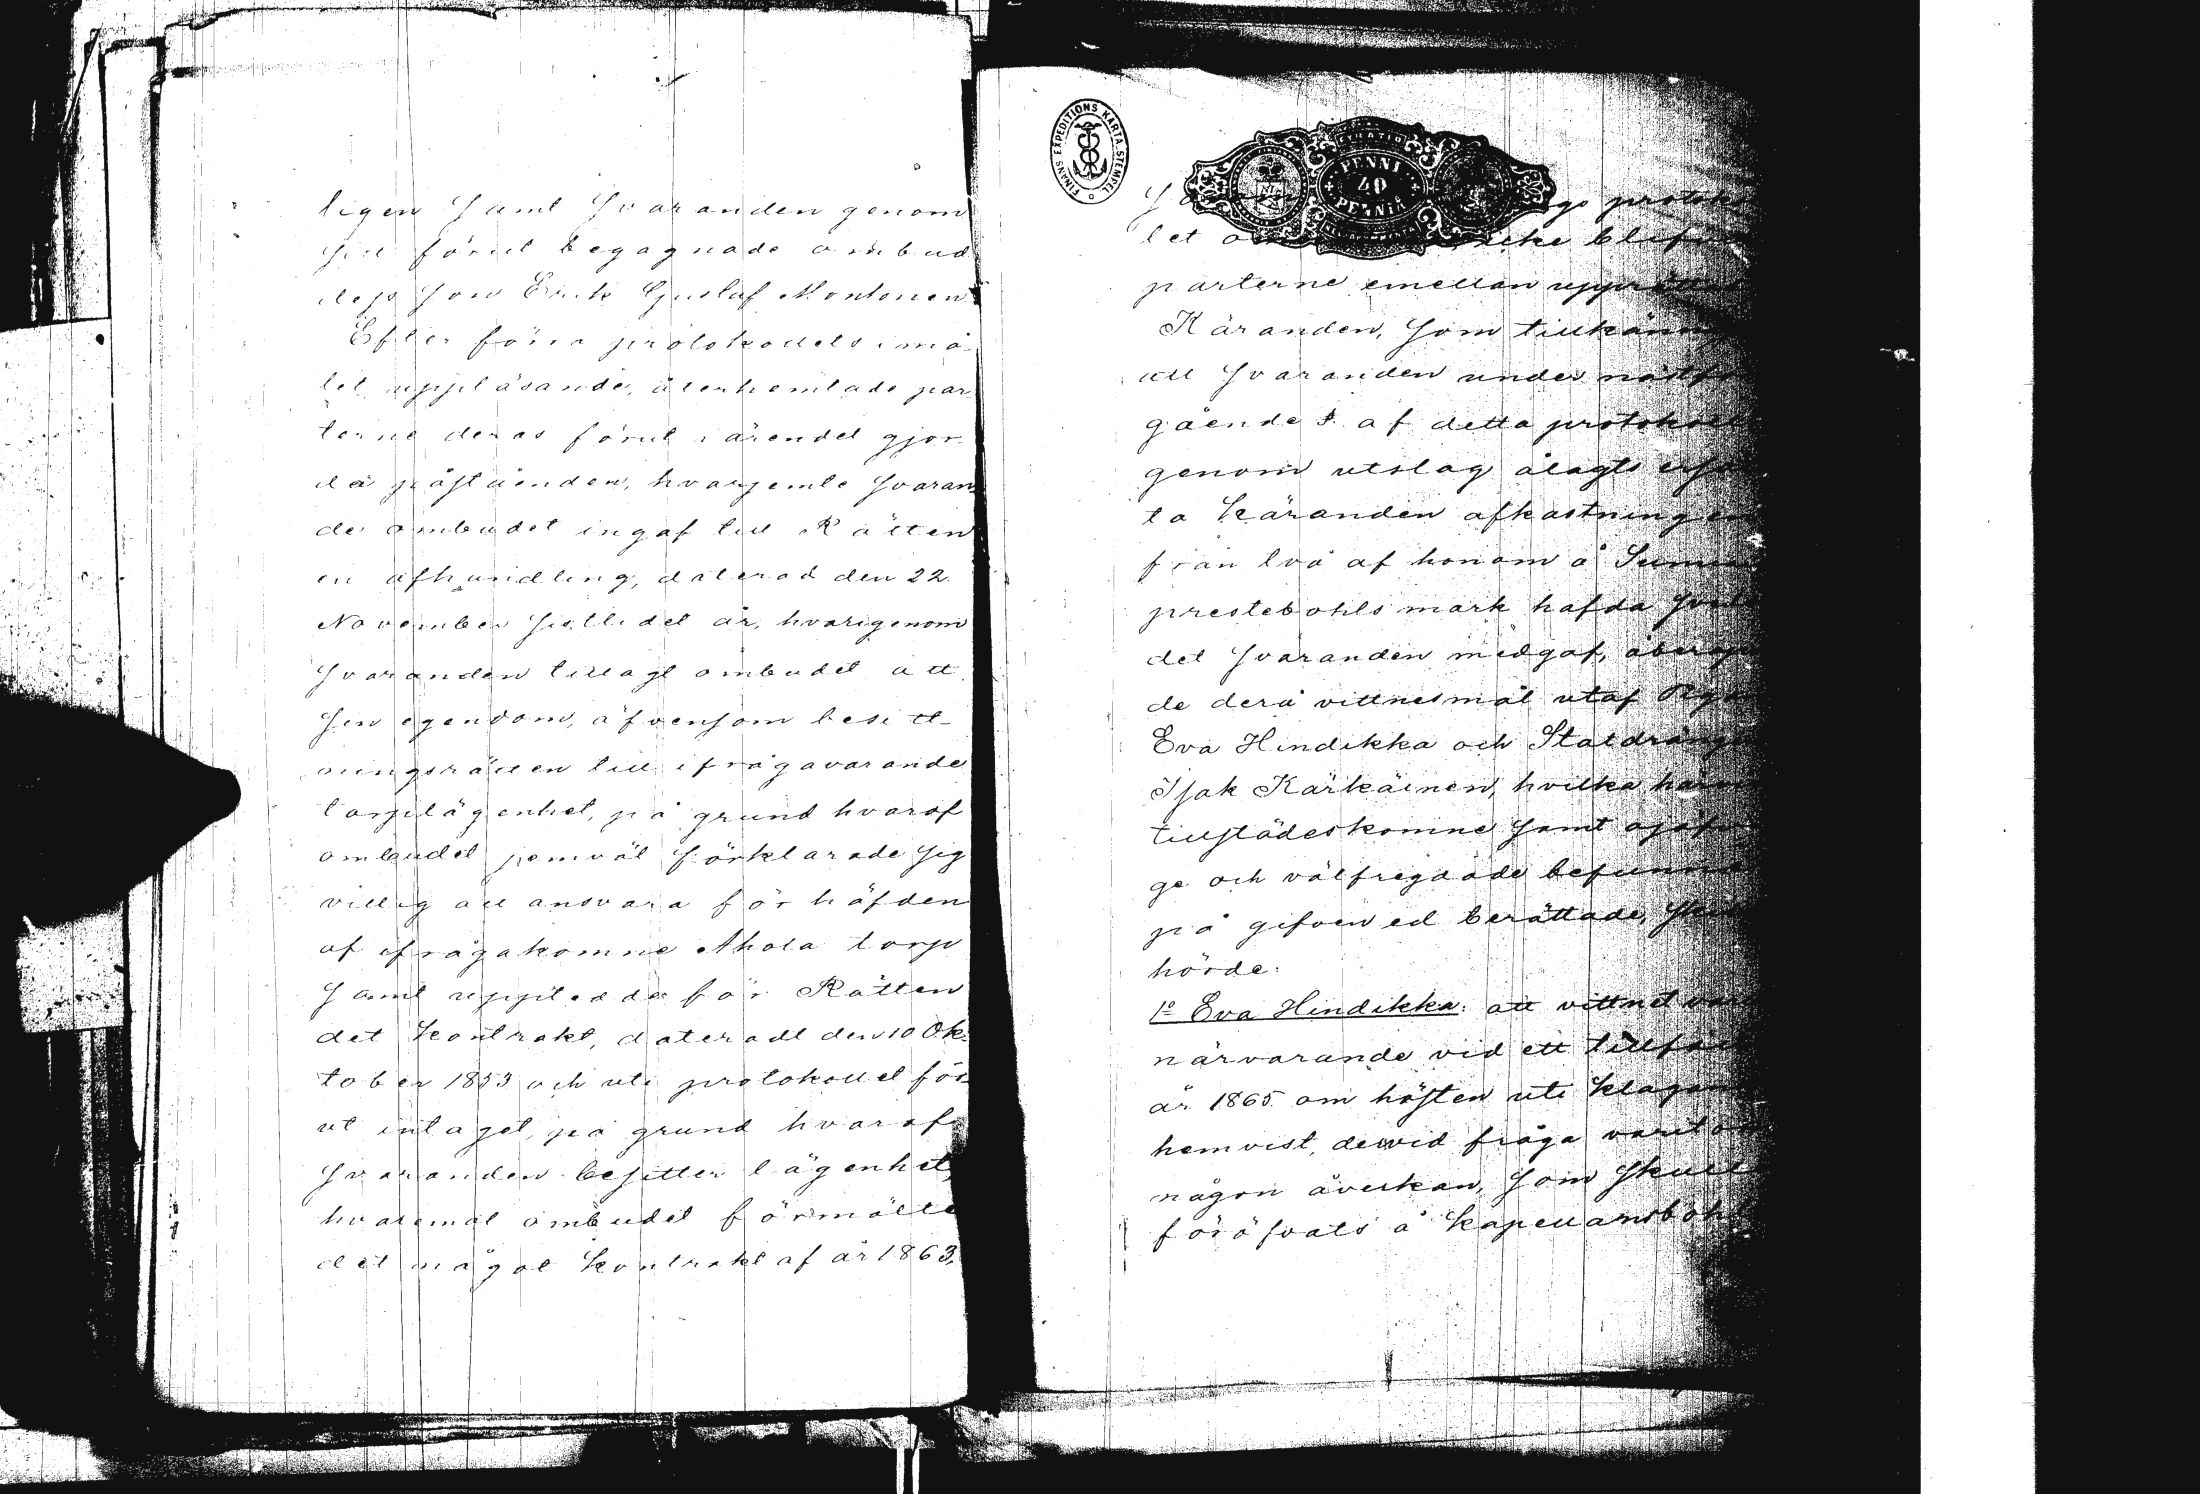 ligen samt Svaranden genom
sitt förut begagnade ombud
dess son Erik Gustaf Montonen.
Efter förra protokollets i må-
let uppläsande, återhemtade par-
terne deras förut i ärendet gjor-
da påståenden, hvarjemte Svaran-
de ombudet ingaf till Rätten
en afhandling, daterad den 22
November sistlidet år, hvarigenom
Svaranden tillagt ombudet all
sin egendom, äfvensom besitt-
ningsrätten till ifrågavarande
torplägenhet, på grund hvaraf
ombudet jemväl förklarade sig
villig att ansvara för häfden
af ifrågakomne Ahola torp
samt uppledde för Rätten
det kontrakt, dateradt den 10 Ok-
tober 1853 och uti protokollet för-
ut intaget, på grund hvaraf
Svaranden besitter lägenhet,
hvaremot ombudet förmälte
det något kontrakt af år 1863,
FINANS EXPEDITIONS KARTA STEMPEL
PENNI
40
PENNIÄ
let icke
parterne emellan
Käranden, som
att Svaranden under
gående § af detta
genom utslag ålagts
ta Käranden afkastningen
från två af honom å
prestebohls mark hafda
det Svaranden medgaf,
de derå vittnesmål utaf
Eva Hindikka och
Isak Kärkäinen, hvilka
tillstädeskomne samt
ge och välfrejdade
på gifven ed berättade,
hörde:
1o Eva Hindikka: att vittnet
närvarande vid ett
år 1865 om hösten uti
hemvist, dervid fråga varit
någon åverkan, som
föröfvats å